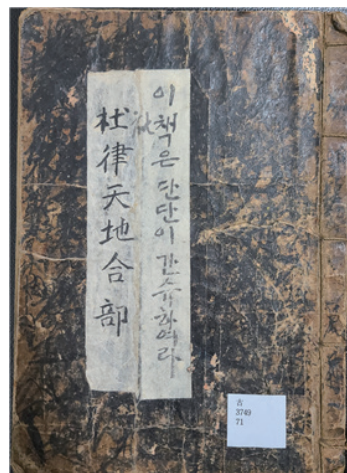 이책은 단단이 간슈하여라
杜律天地合部
古
3749
71